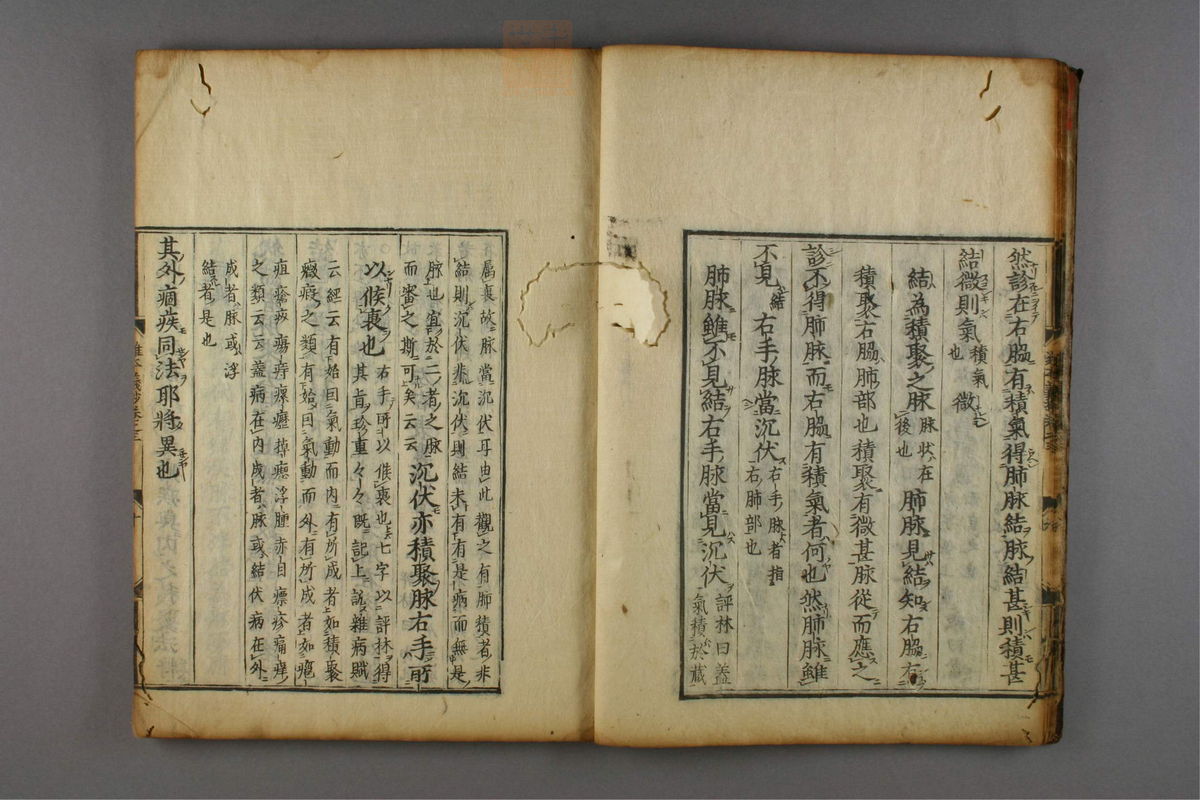 然診在右脇有積氣得肺脉結脉結甚則積甚
結微則氣積氣也微
結為積聚之脉脉状在後也肺脉見結知右脇右
積聚右脇肺部也積聚有微甚脉從而應之
診不得肺脉而右脇有積氣者何也然肺脉雖
不見結右手脉當沉伏右手脉者指右肺部也
肺脉雖不見結右手脉當見沉伏評林曰蓋氣積於藏
屬裏故脉當沉伏耳由此觀之有肺積者非
結則沉伏非沉伏則結未有有是病而無是
脉也宜於二者之脉
而審之斯可矣云云沉伏亦積聚脉右手所
以候裏也右手所以候裏也七字以評林得
其旨珍重々々既記上說雜病賊
云經云有始曰氣動而内有所成者如積聚
癥瘕之類有始曰氣動而外有所成者如瘡
疽瘡疥瘍痔瘰癧掉瘛浮腫赤目瘭疹痛痒
之類云云蓋病在内成者脉或結伏病在外
成者脉或浮
結者是也
其外痼疾同法耶將異也